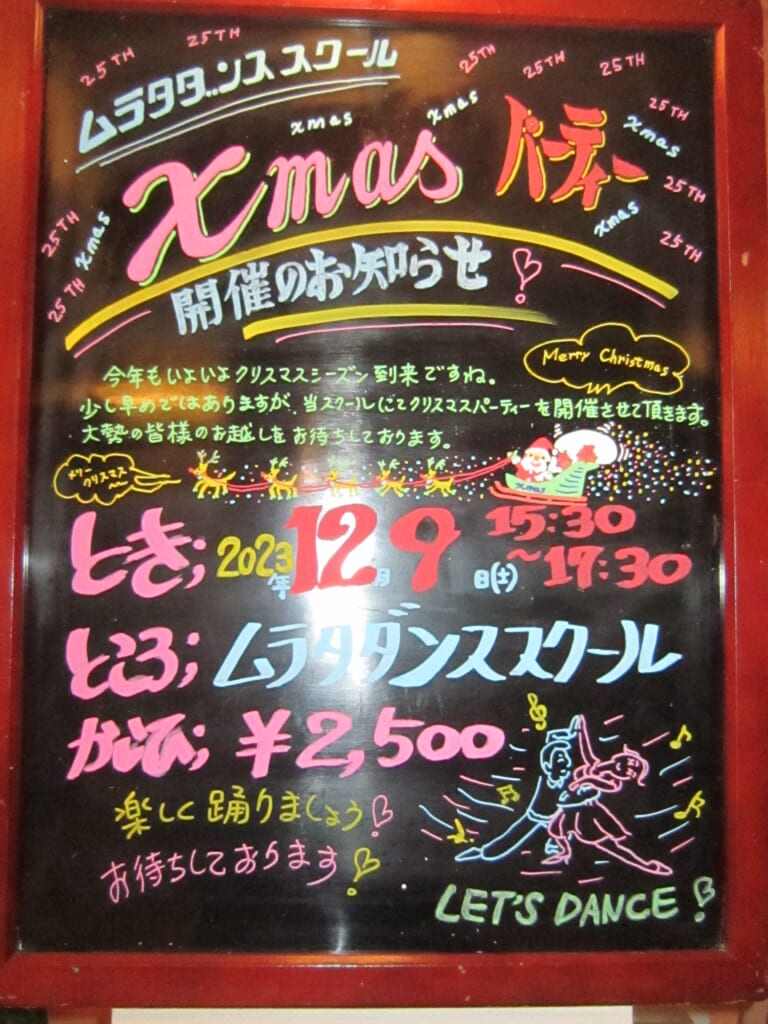 25TH 25TH 25TH 25TH 25TH
ムラタダンススクール
25TH
xmas xmas xmas
Xmas パーティー
25TH
25TH xmas xmas
25TH
25TH
開催のお知らせ!
今年もいよいよクリスマスシーズン到来ですね。
Merry Christmas
少し早めではありますが、当スクールにてクリスマスパーティーを開催させて頂きます。
大勢の皆様のお越しをお待ちしております。
メリークリスマス
Xmas
とき; 2023年12月9日(土) 15:30
~17:30
ところ; ムラタダンススクール
かいひ; ¥2,500
楽しく踊りましょう!
お待ちしております!
LET'S DANCE!